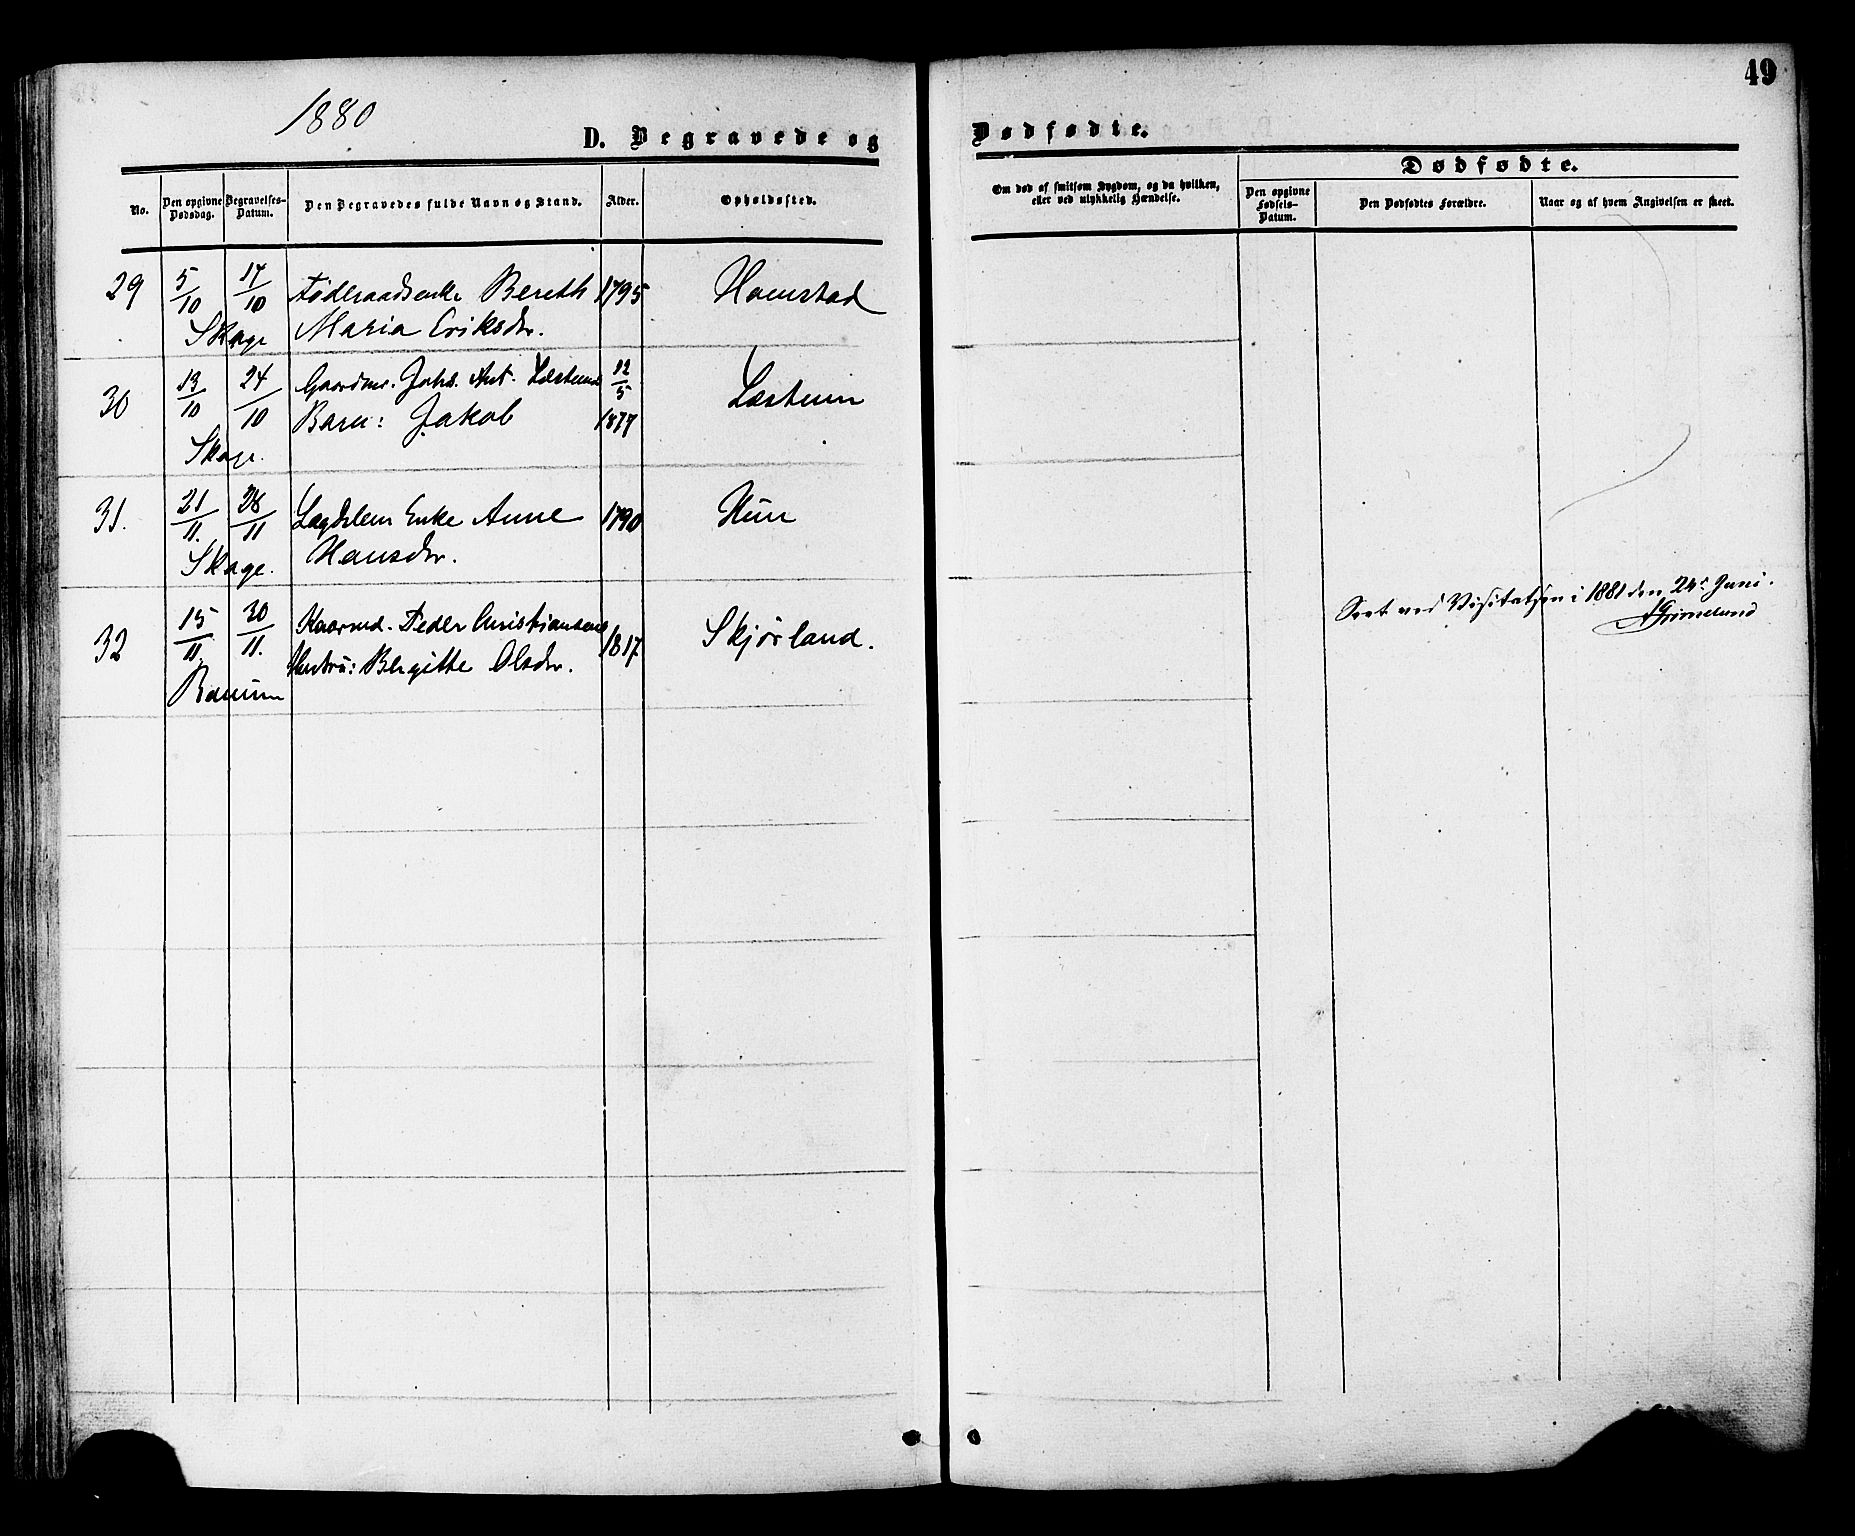 49
1880
D. Begravede og Dødfødte.
No.
Den opgivne Dødsdag.
Begravelses-Datum.
Den Begravedes fulde Navn og Stand.
Alder.
Opholdssted.
Om død af smitsom Sygdom, og da hvilken, eller ved ulykkelig Hændelse.
Dødfødte.
Den opgivne Fødsels-Datum.
Den Dødfødtes Forældre.
Naar og af hvem Angivelsen er skeet.
29 5/10 17/10 Føderaadsenke Bereth 1795
Skage Maria Eriksdr.
30 13/10 24/10 Gaardmr. Johs. Ant. 12/5
Barn: Jakob 1877
Skage.
31. 21/11. 28/11 Lægdslem Enke Anne 1790 Hun
Skage. Hansdr.
32 15/11. 30/11. Peder Christiansens 1817 Skjørland.
Hustru: Bergitte Olsdr.
Ranum
Seet ved Visitatsen i 1881 den 24de Juni.
Grimelund